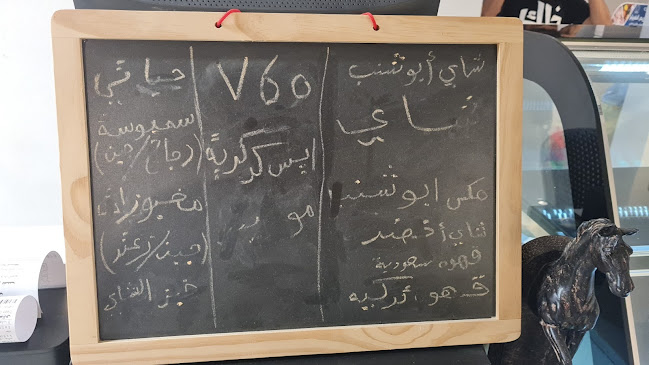 شاي أبو تشب
شاي
مكس ابو تشب
شاي أخضر
قهوة سعودية
قهوة تركيه
V60
ايس كركدية
موية
حياتي
سمبوسة
(دجاج/جبن)
مخبوزات
(جبن/زعتر)
خبز الشاي
ذلك